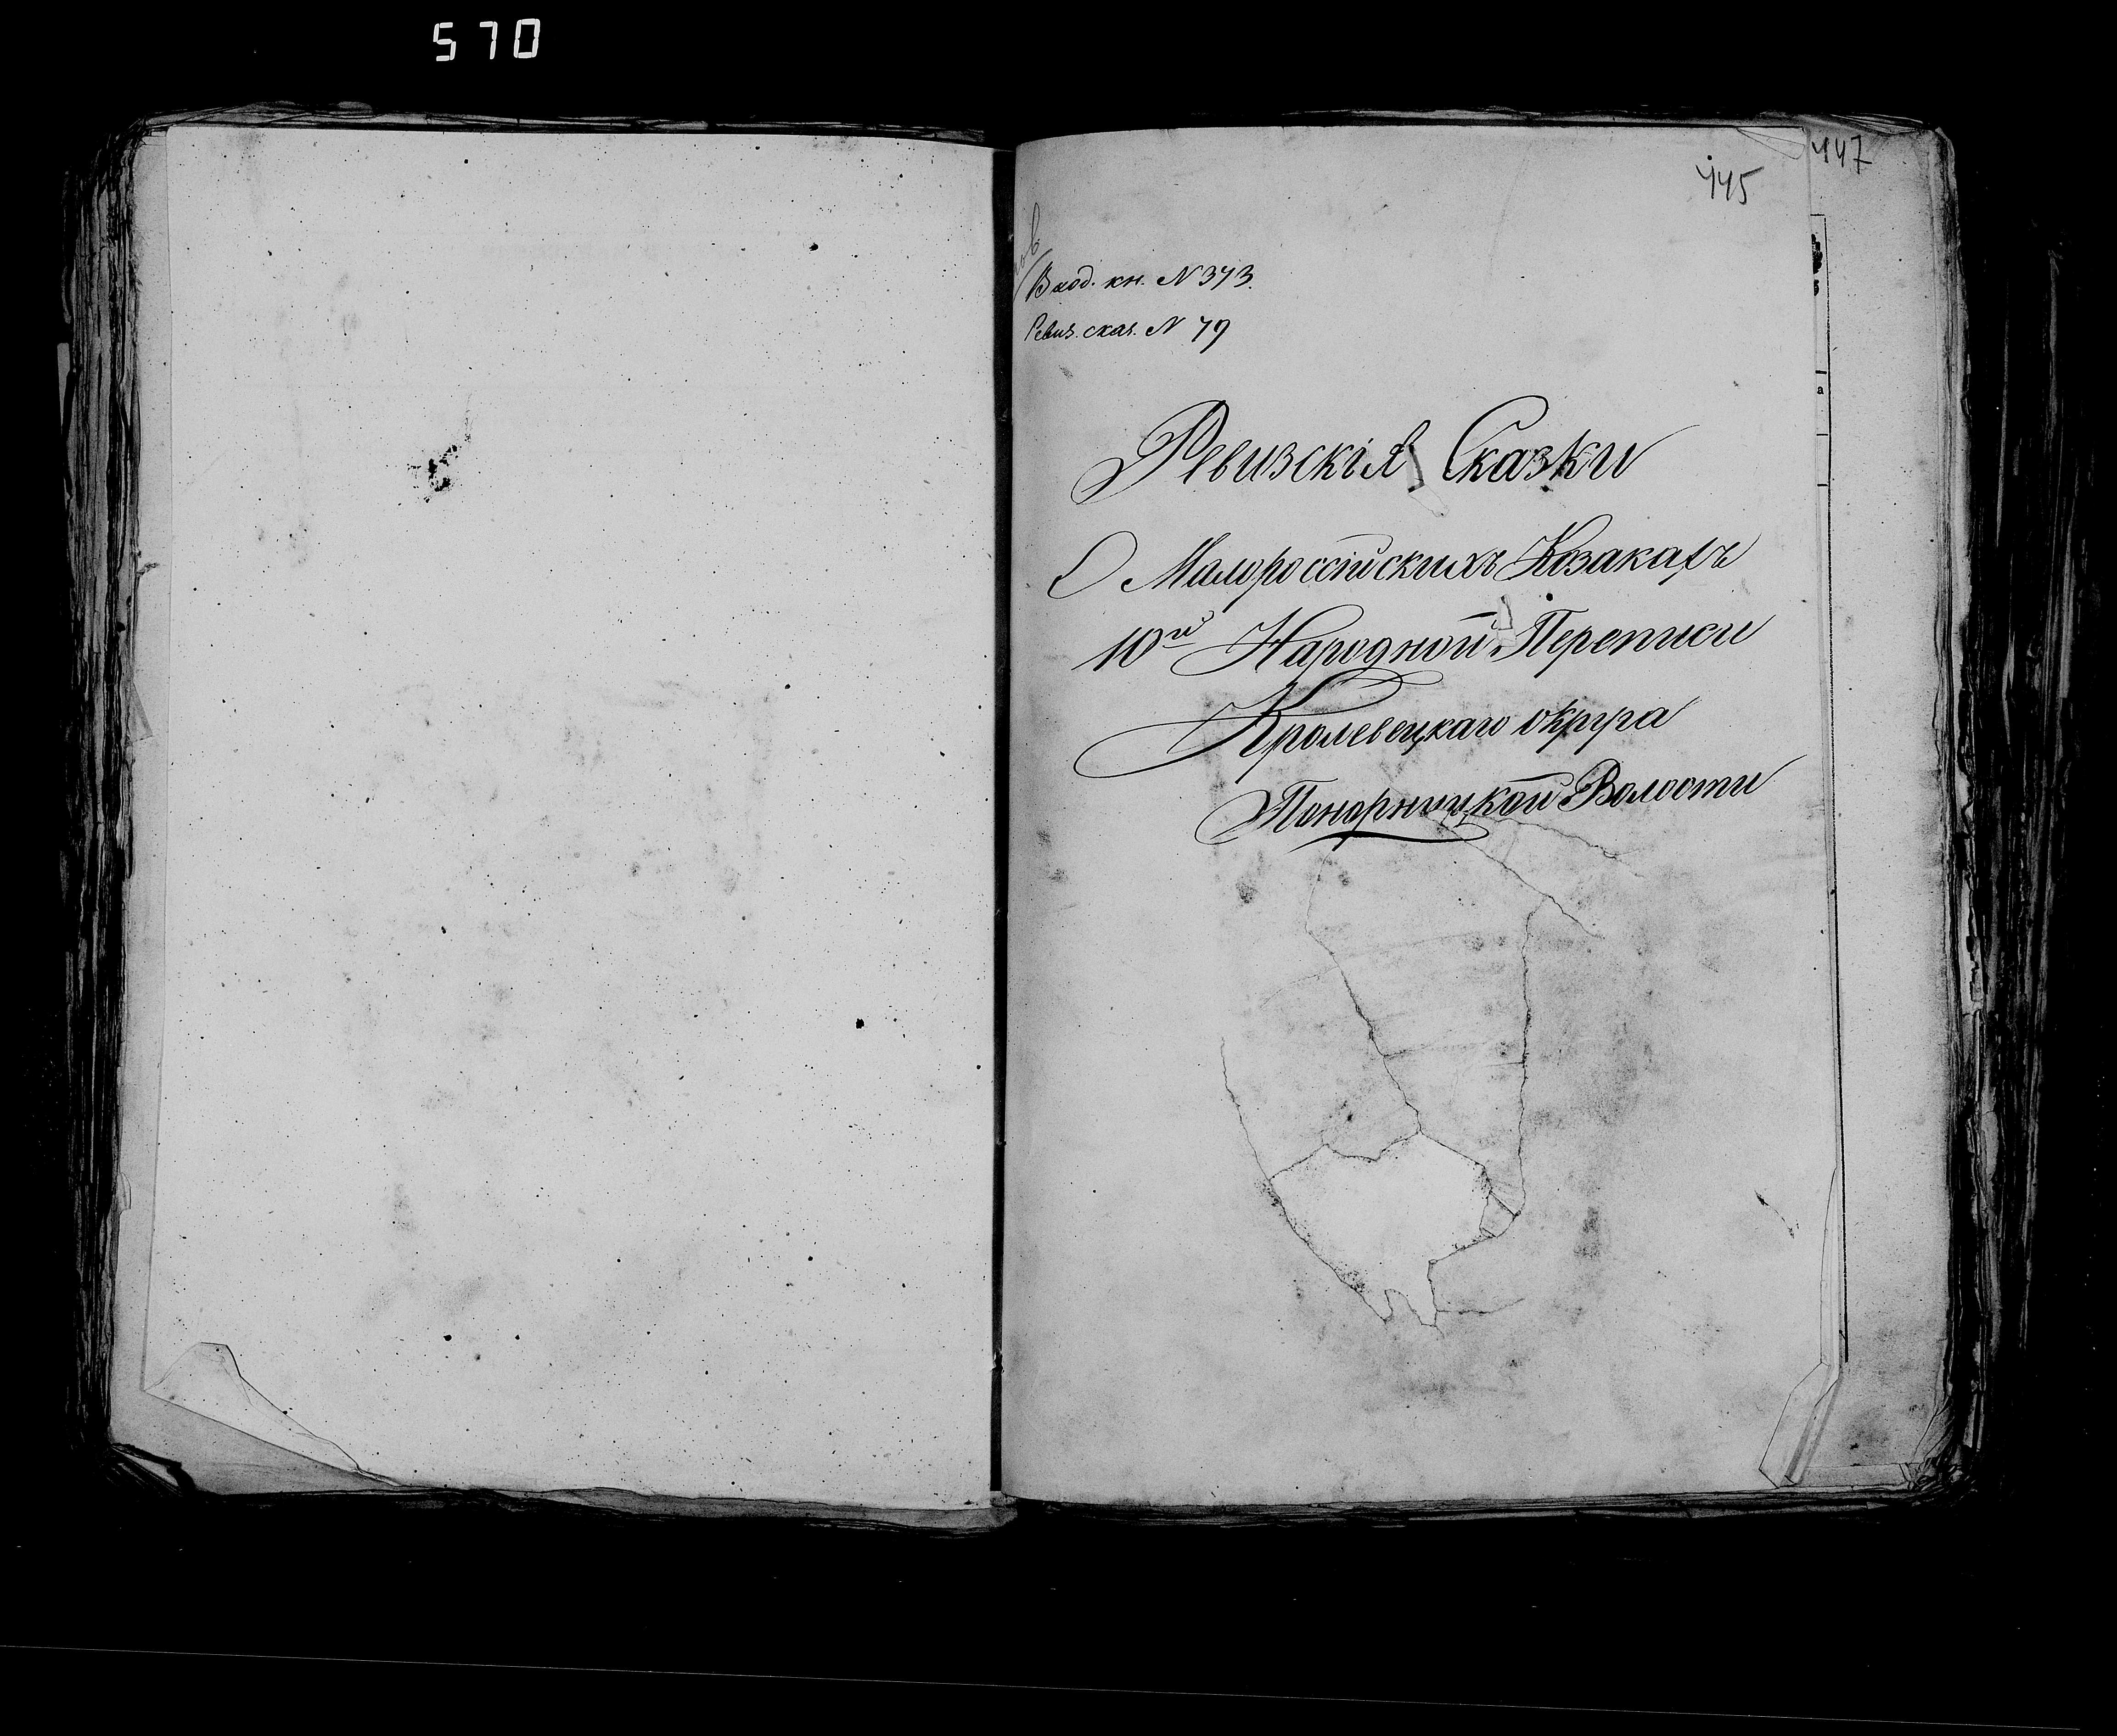 570
447
445
Вход. кн. N 373.
Ревиз. сказ. N 79
Ревизскія Сказки
О Малороссійскихъ Козакахъ
10й Народной Переписи
Кролевецкаго округа
Понорницкой Волости